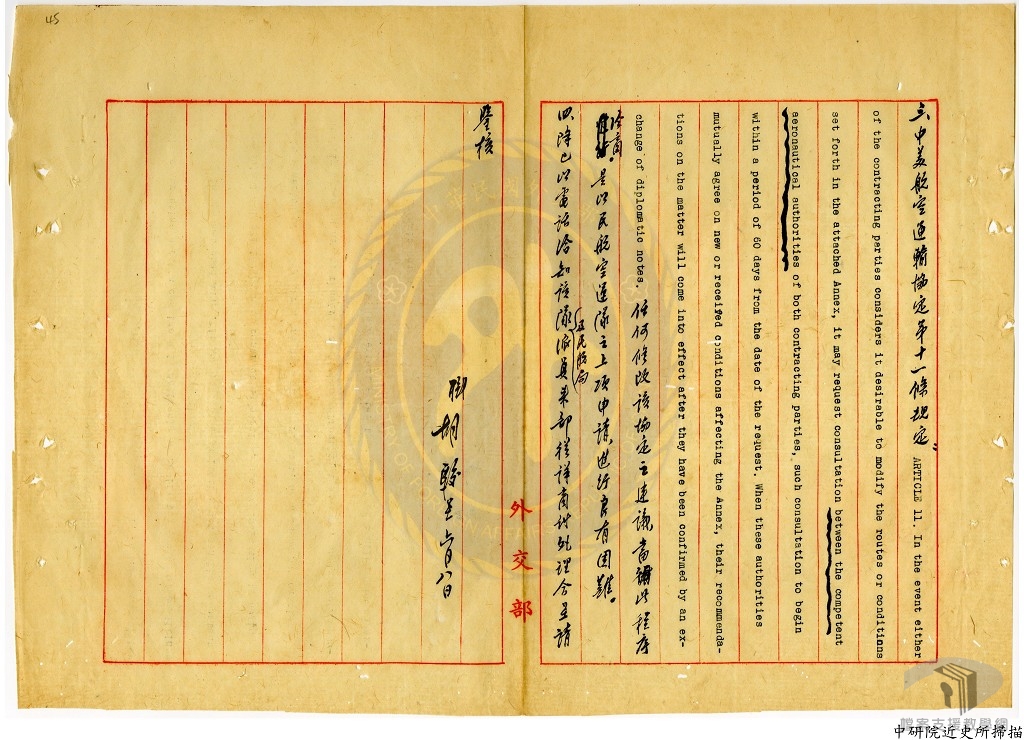 45
三、中美航空運輸協定第十一條規定： ARTICLE 11. In the event either
of the contracting parties considers it desirable to modify the routes or conditions
set forth in the attached Annex, it may request consultation between the competent
aeronautical authorities of both contracting parties, such consultation to begin
within a period of 60 days from the date of the request. When these authorities
mutually agree on new or receifed conditions affecting the Annex, their recommenda-
tions on the matter will come into effect after they have been confirmed by an ex-
change of diplomatic notes. 任何修改該協定之建議當循此程序
洽商。是以民航空運隊之上項申請進行頗有困難。
四、除已以電話洽知該隊及民航局派員來部詳商外處理合呈請
鑒核
職胡駿呈 八日
外交部
檔案支援教學網
中研院近史所掃描